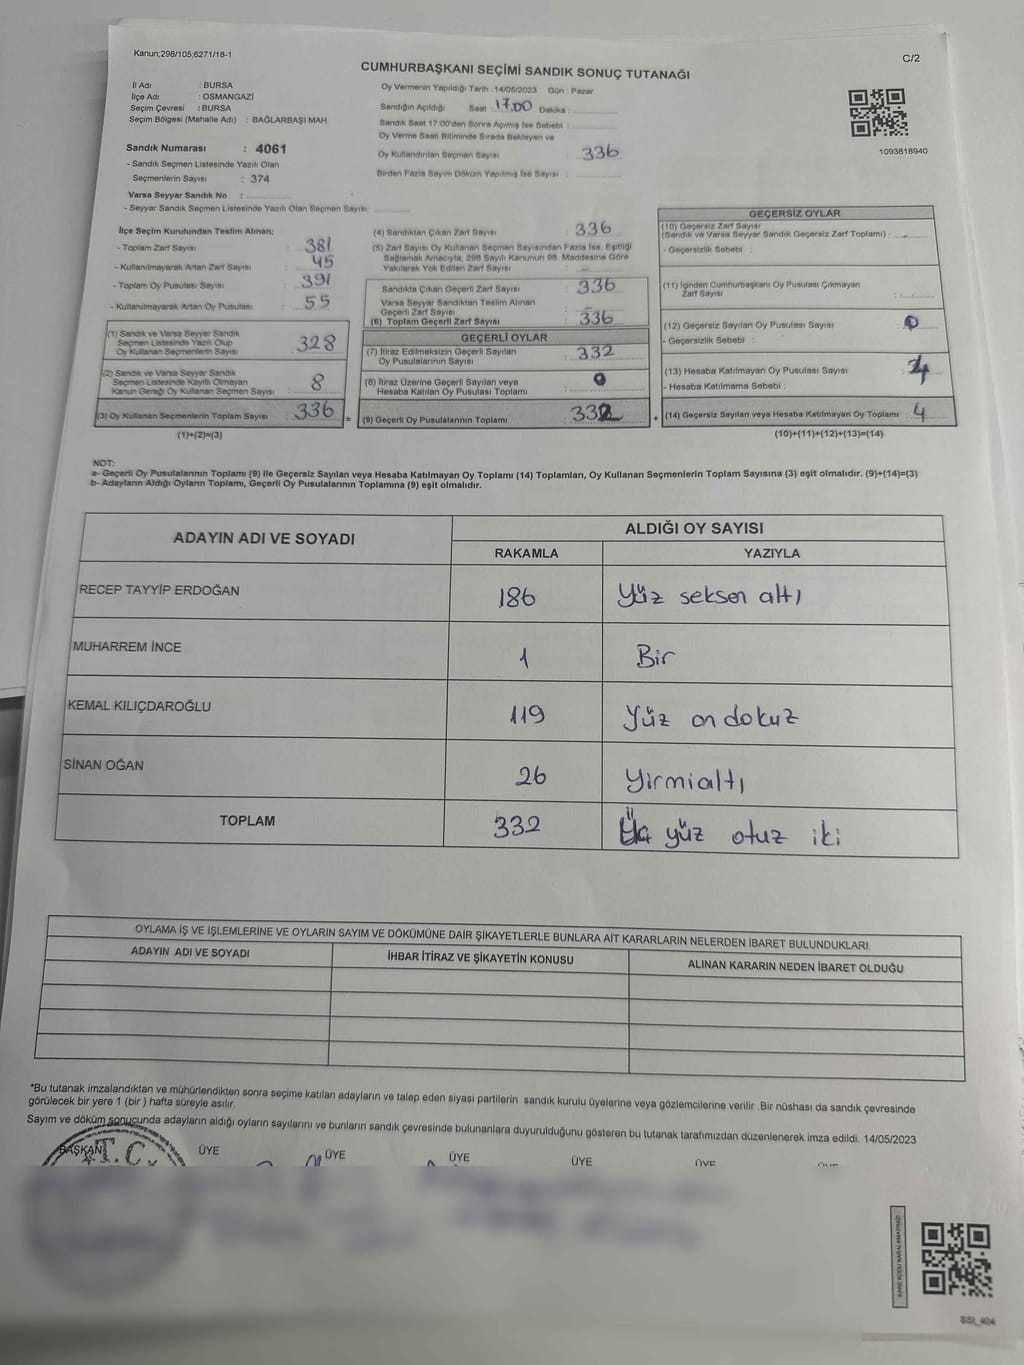 Kanun;298/105;6271/18-1
C/2
CUMHURBAŞKANI SEÇİMİ SANDIK SONUÇ TUTANAĞI
İl Adı : BURSA
İlçe Adı : OSMANGAZİ
Seçim Çevresi : BURSA
Seçim Bölgesi (Mahalle Adı) : BAĞLARBAŞI MAH.
Sandık Numarası : 4061
- Sandık Seçmen Listesinde Yazılı Olan
Seçmenlerin Sayısı : 374
Varsa Seyyar Sandık No :
- Seyyar Sandık Seçmen Listesinde Yazılı Olan Seçmen Sayısı:
Oy Vermenin Yapıldığı Tarih : 14/05/2023 Gün : Pazar
Sandığın Açıldığı Saat : 17.00 Dakika :
Sandık Saat 17:00'den Sonra Açımış İse Sebebi :
Oy Verme Saati Bitiminde Sırada Bekleyen ve
Oy Kullandırılan Seçmen Sayısı : 336
Birden Fazla Sayım Döküm Yapılmış İse Sayısı :
1093818940
İlçe Seçim Kurulundan Teslim Alınan;
- Toplam Zarf Sayısı : 381
- Kullanılmayarak Artan Zarf Sayısı : 45
- Toplam Oy Pusulası Sayısı : 391
- Kullanılmayarak Artan Oy Pusulası : 55
(1) Sandık ve Varsa Seyyar Sandık
Seçmen Listesinde Yazılı Olup
Oy Kullanan Seçmenlerin Sayısı : 328
(2) Sandık ve Varsa Seyyar Sandık
Seçmen Listesinde Kayıtlı Olmayan
Kanun Gereği Oy Kullanan Seçmen Sayısı : 8
(3) Oy Kullanan Seçmenlerin Toplam Sayısı : 336
(1)+(2)=(3)
=
(4) Sandıktan Çıkan Zarf Sayısı : 336
(5) Zarf Sayısı Oy Kullanan Seçmen Sayısından Fazla İse, Eşitliği
Sağlamak Amacıyla; 298 Sayılı Kanunun 98. Maddesine Göre
Yakılarak Yok Edilen Zarf Sayısı :
Sandıkta Çıkan Geçerli Zarf Sayısı : 336
Varsa Seyyar Sandıktan Teslim Alınan
Geçerli Zarf Sayısı :
(6) Toplam Geçerli Zarf Sayısı : 336
GEÇERLİ OYLAR
(7) İtiraz Edilmeksizin Geçerli Sayılan
Oy Pusulalarının Sayısı : 332
(8) İtiraz Üzerine Geçerli Sayılan veya
Hesaba Katılan Oy Pusulası Toplamı : 0
(9) Geçerli Oy Pusulalarının Toplamı : 332
+
GEÇERSİZ OYLAR
(10) Geçersiz Zarf Sayısı
(Sandık ve Varsa Seyyar Sandık Geçersiz Zarf Toplamı) :
- Geçersizlik Sebebi :
(11) İçinden Cumhurbaşkanı Oy Pusulası Çıkmayan
Zarf Sayısı :
(12) Geçersiz Sayılan Oy Pusulası Sayısı : 0
- Geçersizlik Sebebi :
(13) Hesaba Katılmayan Oy Pusulası Sayısı : 4
- Hesaba Katılmama Sebebi :
(14) Geçersiz Sayılan veya Hesaba Katılmayan Oy Toplamı : 4
(10)+(11)+(12)+(13)=(14)
NOT:
a- Geçerli Oy Pusulalarının Toplamı (9) ile Geçersiz Sayılan veya Hesaba Katılmayan Oy Toplamı (14) Toplamları, Oy Kullanan Seçmenlerin Toplam Sayısına (3) eşit olmalıdır. (9)+(14)=(3)
b- Adayların Aldığı Oyların Toplamı, Geçerli Oy Pusulalarının Toplamına (9) eşit olmalıdır.
ADAYIN ADI VE SOYADI
ALDIĞI OY SAYISI
RAKAMLA YAZIYLA
RECEP TAYYİP ERDOĞAN 186 Yüz seksen altı
MUHARREM İNCE 1 Bir
KEMAL KILIÇDAROĞLU 119 Yüz on dokuz
SİNAN OĞAN 26 Yirmialtı
TOPLAM 332 Üç yüz otuz iki
OYLAMA İŞ VE İŞLEMLERİNE VE OYLARIN SAYIM VE DÖKÜMÜNE DAİR ŞİKAYETLERLE BUNLARA AİT KARARLARIN NELERDEN İBARET BULUNDUKLARI
ADAYIN ADI VE SOYADI İHBAR İTİRAZ VE ŞİKAYETİN KONUSU ALINAN KARARIN NEDEN İBARET OLDUĞU
*Bu tutanak imzalandıktan ve mühürlendikten sonra seçime katılan adayların ve talep eden siyasi partilerin sandık kurulu üyelerine veya gözlemcilerine verilir .Bir nüshası da sandık çevresinde
görülecek bir yere 1 (bir ) hafta süreyle asılır.
Sayım ve döküm sonucunda adayların aldığı oyların sayılarını ve bunların sandık çevresinde bulunanlara duyurulduğunu gösteren bu tutanak tarafımızdan düzenlenerek imza edildi. 14/05/2023
BAŞKAN ÜYE ÜYE ÜYE ÜYE ÜYE
T.C.
KARE KODU KARALAMAYINIZ!
SSI_404